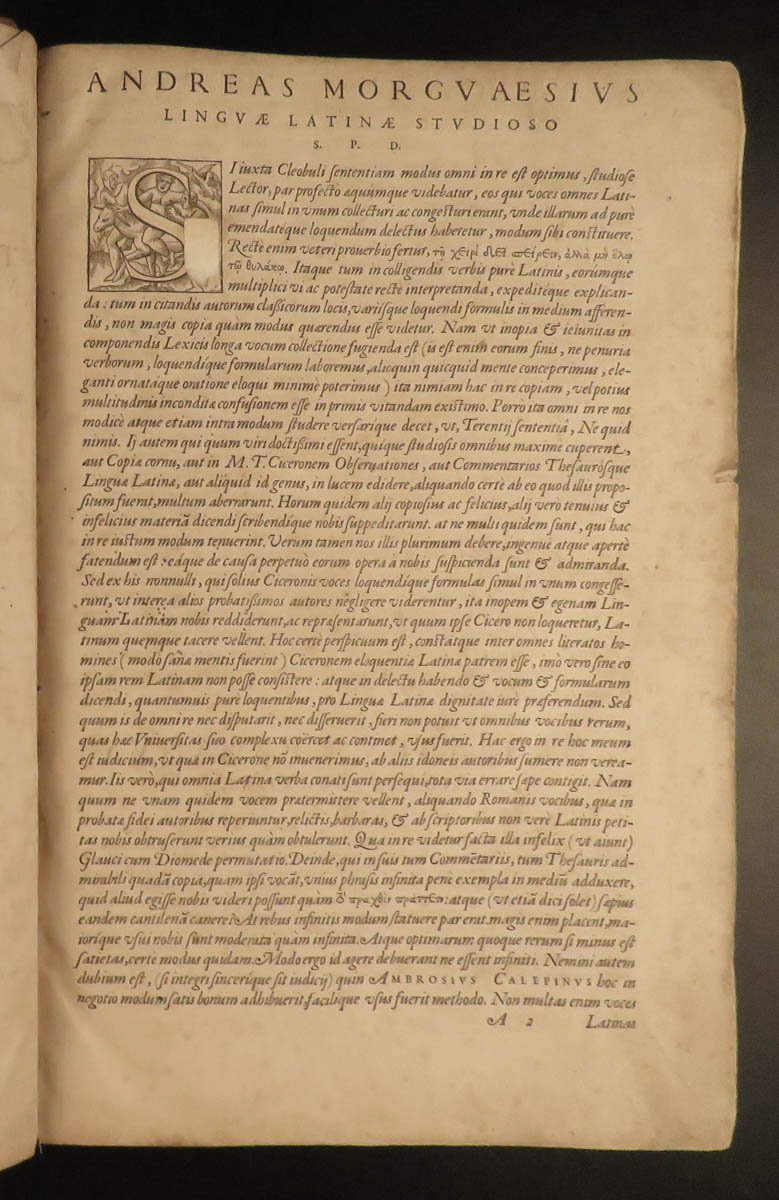 ANDREAS MORGVAESIVS
LINGVÆ LATINÆ STVDIOSO
S. P. D.
SI iuxta Cleobuli sententiam modus omni in re est optimus, studiose
Lector, par profecto æquúmque videbatur, eos qui voces omnes Lati-
nas simul in vnum collecturi ac congesturi erant, vnde illarum ad purè
emendatéque loquendum delectus haberetur, modum sibi constituere.
Rectè enim veteri prouerbio fertur, τῇ χειρὶ δεῖ σπείρειν, ἀλλὰ μὴ ὅλῳ
τῷ θυλάκῳ. Itaque tum in colligendis verbis purè Latinis, eorúmque
multiplici vi ac potestate rectè interpretanda, expeditéque explican-
da: tum in citandis autorum classicorum locis, variísque loquendi formulis in medium afferen-
dis, non magis copia quàm modus quærendus esse videtur. Nam vt inopia & ieiunitas in
componendis Lexicis longa vocum collectione fugienda est (is est enim eorum finis, ne penuria
verborum, loquendíque formularum laboremus, alioquin quicquid mente conceperimus, ele-
ganti ornatáque oratione eloqui minimè poterimus) ita nimiam hac in re copiam, vel potius
multitudinis inconditæ confusionem esse in primis vitandam existimo. Porro ita omni in re nos
modicè atque etiam intra modum studere versarique decet, vt, Terentij sententiâ, Ne quid
nimis. Ij autem qui quum viri doctissimi essent, quique studiosis omnibus maxime cuperent,
aut Copiæ cornu, aut in M. T. Ciceronem Obseruationes, aut Commentarios Thesaurósque
Linguæ Latinæ, aut aliquid id genus, in lucem edidere, aliquando certè ab eo quod illis propo-
situm fuerat, multum aberrarunt. Horum quidem alij copiosius ac felicius, alij vero tenuius &
infelicius materiã dicendi scribendique nobis suppeditarunt. at ne multi quidem sunt, qui hac
in re iustum modum tenuerint. Verum tamen nos illis plurimum debere, ingenue atque apertè
fatendum est: eáque de causa perpetuò eorum opera à nobis suspicienda sunt & admiranda.
Sed ex his nonnulli, qui solius Ciceronis voces loquendique formulas simul in vnum congesse-
runt, vt interea alios probatissimos autores negligere viderentur, ita inopem & egenam Lin-
guam Latinam nobis reddiderunt, ac repræsentarunt, vt quum ipse Cicero non loqueretur, La-
tinum quemque tacere vellent. Hoc certè perspicuum est, constátque inter omnes literatos ho-
mines (modò sanæ mentis fuerint) Ciceronem eloquentiæ Latinæ patrem esse, imò vero sine eo
ipsam rem Latinam non posse consistere: atque in delectu habendo & vocum & formularum
dicendi, quantumuis purè loquentibus, pro Linguæ Latinæ dignitate iurè præferendum. Sed
quum is de omni re nec disputarit, nec disseruerit, fieri non potuit vt omnibus vocibus rerum,
quas hæc Vniuersitas suo complexu coërcet ac continet, vsus fuerit. Hac ergo in re hoc meum
est iudicium, vt quæ in Cicerone nõ inuenerimus, ab aliis idoneis autoribus sumere non verea-
mur. Iis verò, qui omnia Latina verba conati sunt persequi, tota via errare sæpe contigit. Nam
quum ne vnam quidem vocem prætermittere vellent, aliquando Romanis vocibus, quæ in
probatæ fidei autoribus reperiuntur, relictis, barbaras, & ab scriptoribus non verè Latinis peti-
tas nobis obtruserunt verius quàm obtulerunt. Qua in re videtur facta illa infelix (vt aiunt)
Glauci cum Diomede permutatio. Deinde, qui in suis tum Commētariis, tum Thesauris ad-
mirabili quadã copia, quam ipsi vocãt, vnius phrasis infinita penè exempla in mediũ adduxere,
quid aliud egisse nobis videri possunt quàm atque (vt etiã dici solet) sæpius
eandem cantilenã canere? At rebus infinitis modum statuere par erat. magis enim placent, ma-
ioríque vsui nobis sunt moderata quàm infinita. Atque optimarum quoque rerum si minus est
satietas, certè modus quidam. Modo ergo id agere debuerant ne essent infiniti. Nemini autem
dubium est, (si integri sinceríque sit iudicij) quin AMBROSIVS CALEPINVS hoc in
negotio modum satis bonum adhibuerit, facilique vsus fuerit methodo. Non multas enim voces
A 2 Latinas